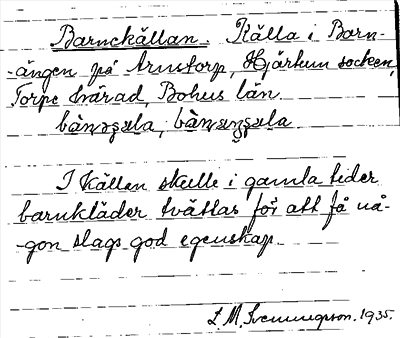 Barnekällan. Källa i Barn-
-ängen på Arnstorp, Hjärtum socken,
Torpe härad, Bohus län.
I källan skulle i gamla tider
barnkläder tvättas för att få nå-
-gon slags god egenskap.
L. M. Svenungsson. 1935.